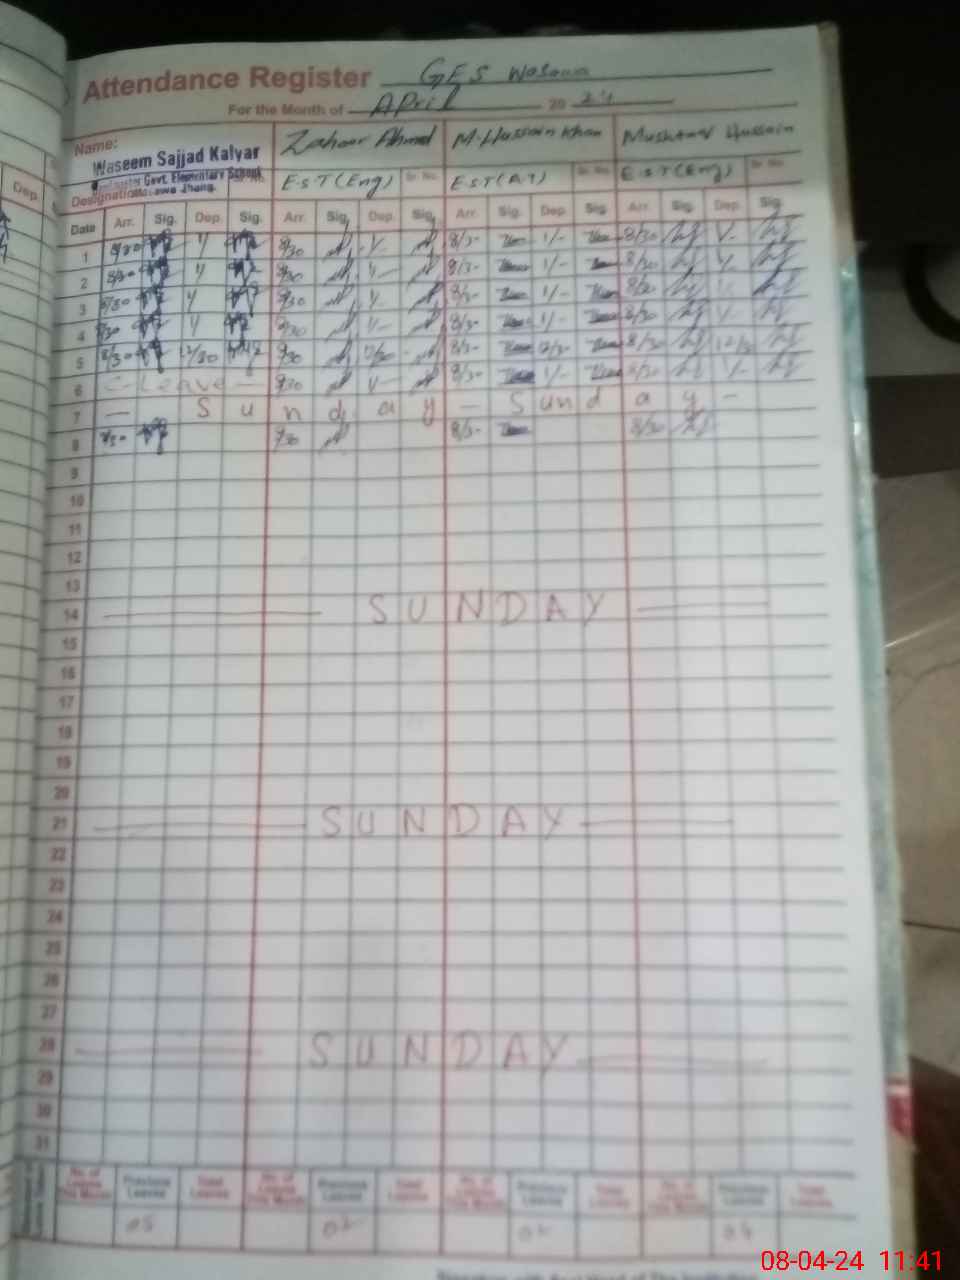 Attendance Register GES Wasawa
For the Month of April 20 24
Name: Waseem Sajjad Kalyar Zahoor Ahmad M. Hussain Khan Mushtaq Hussain
Govt. Elementary School Sr. No. Sr. No. Sr. No.
Designation Wasawa Jhang. E.S.T (Eng) E.S.T (A.T) E.S.T (Eng)
Date Arr. Sig. Dep. Sig. Arr. Sig. Dep. Sig. Arr. Sig. Dep. Sig. Arr. Sig. Dep. Sig.
1 8/30 1/ 8/30 1/- 8/30 1/- 8/30 1/-
2 8/30 1/ 8/30 1/- 8/30 1/- 8/30 1/-
3 8/30 1/ 8/30 1/- 8/30 1/- 8/30
4 8/30 1/ 8/30 1/- 8/30 1/- 8/30 1/-
5 8/30 12/30 8/30 12/30 8/30 12/30 8/30 12/30
6 - Leave - 8/30 1/- 8/30 1/- 8/30 1/-
7 - Sunday - Sunday -
8 8/30 8/30 8/30 8/30
9
10
11
12
13
14 SUNDAY
15
16
17
18
19
20
21 SUNDAY
22
23
24
25
26
27
28 SUNDAY
29
30
31
No. of Leaves This Month Previous Leaves Total Leaves No. of Leaves This Month Previous Leaves Total Leaves No. of Leaves This Month Previous Leaves Total Leaves No. of Leaves This Month Previous Leaves Total Leaves
05
08-04-24 11:41
Dep.